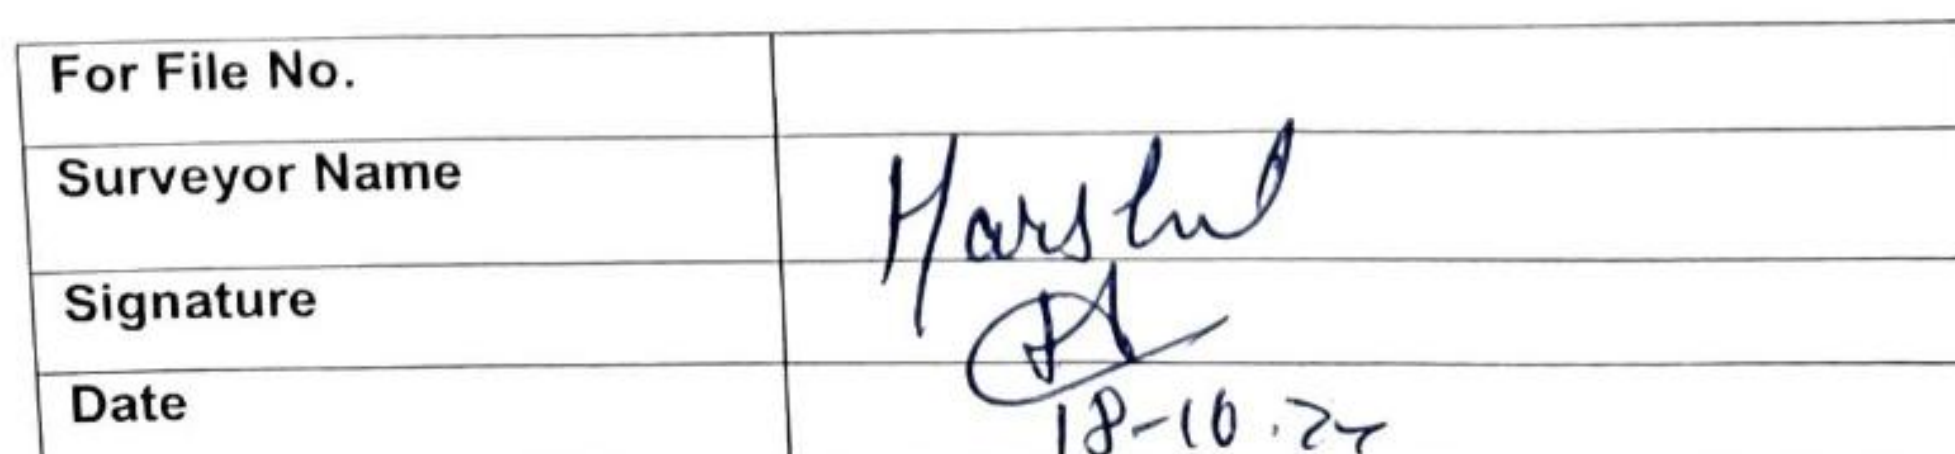 For File No.
Surveyor Name Harshul
Signature
Date 18-10.